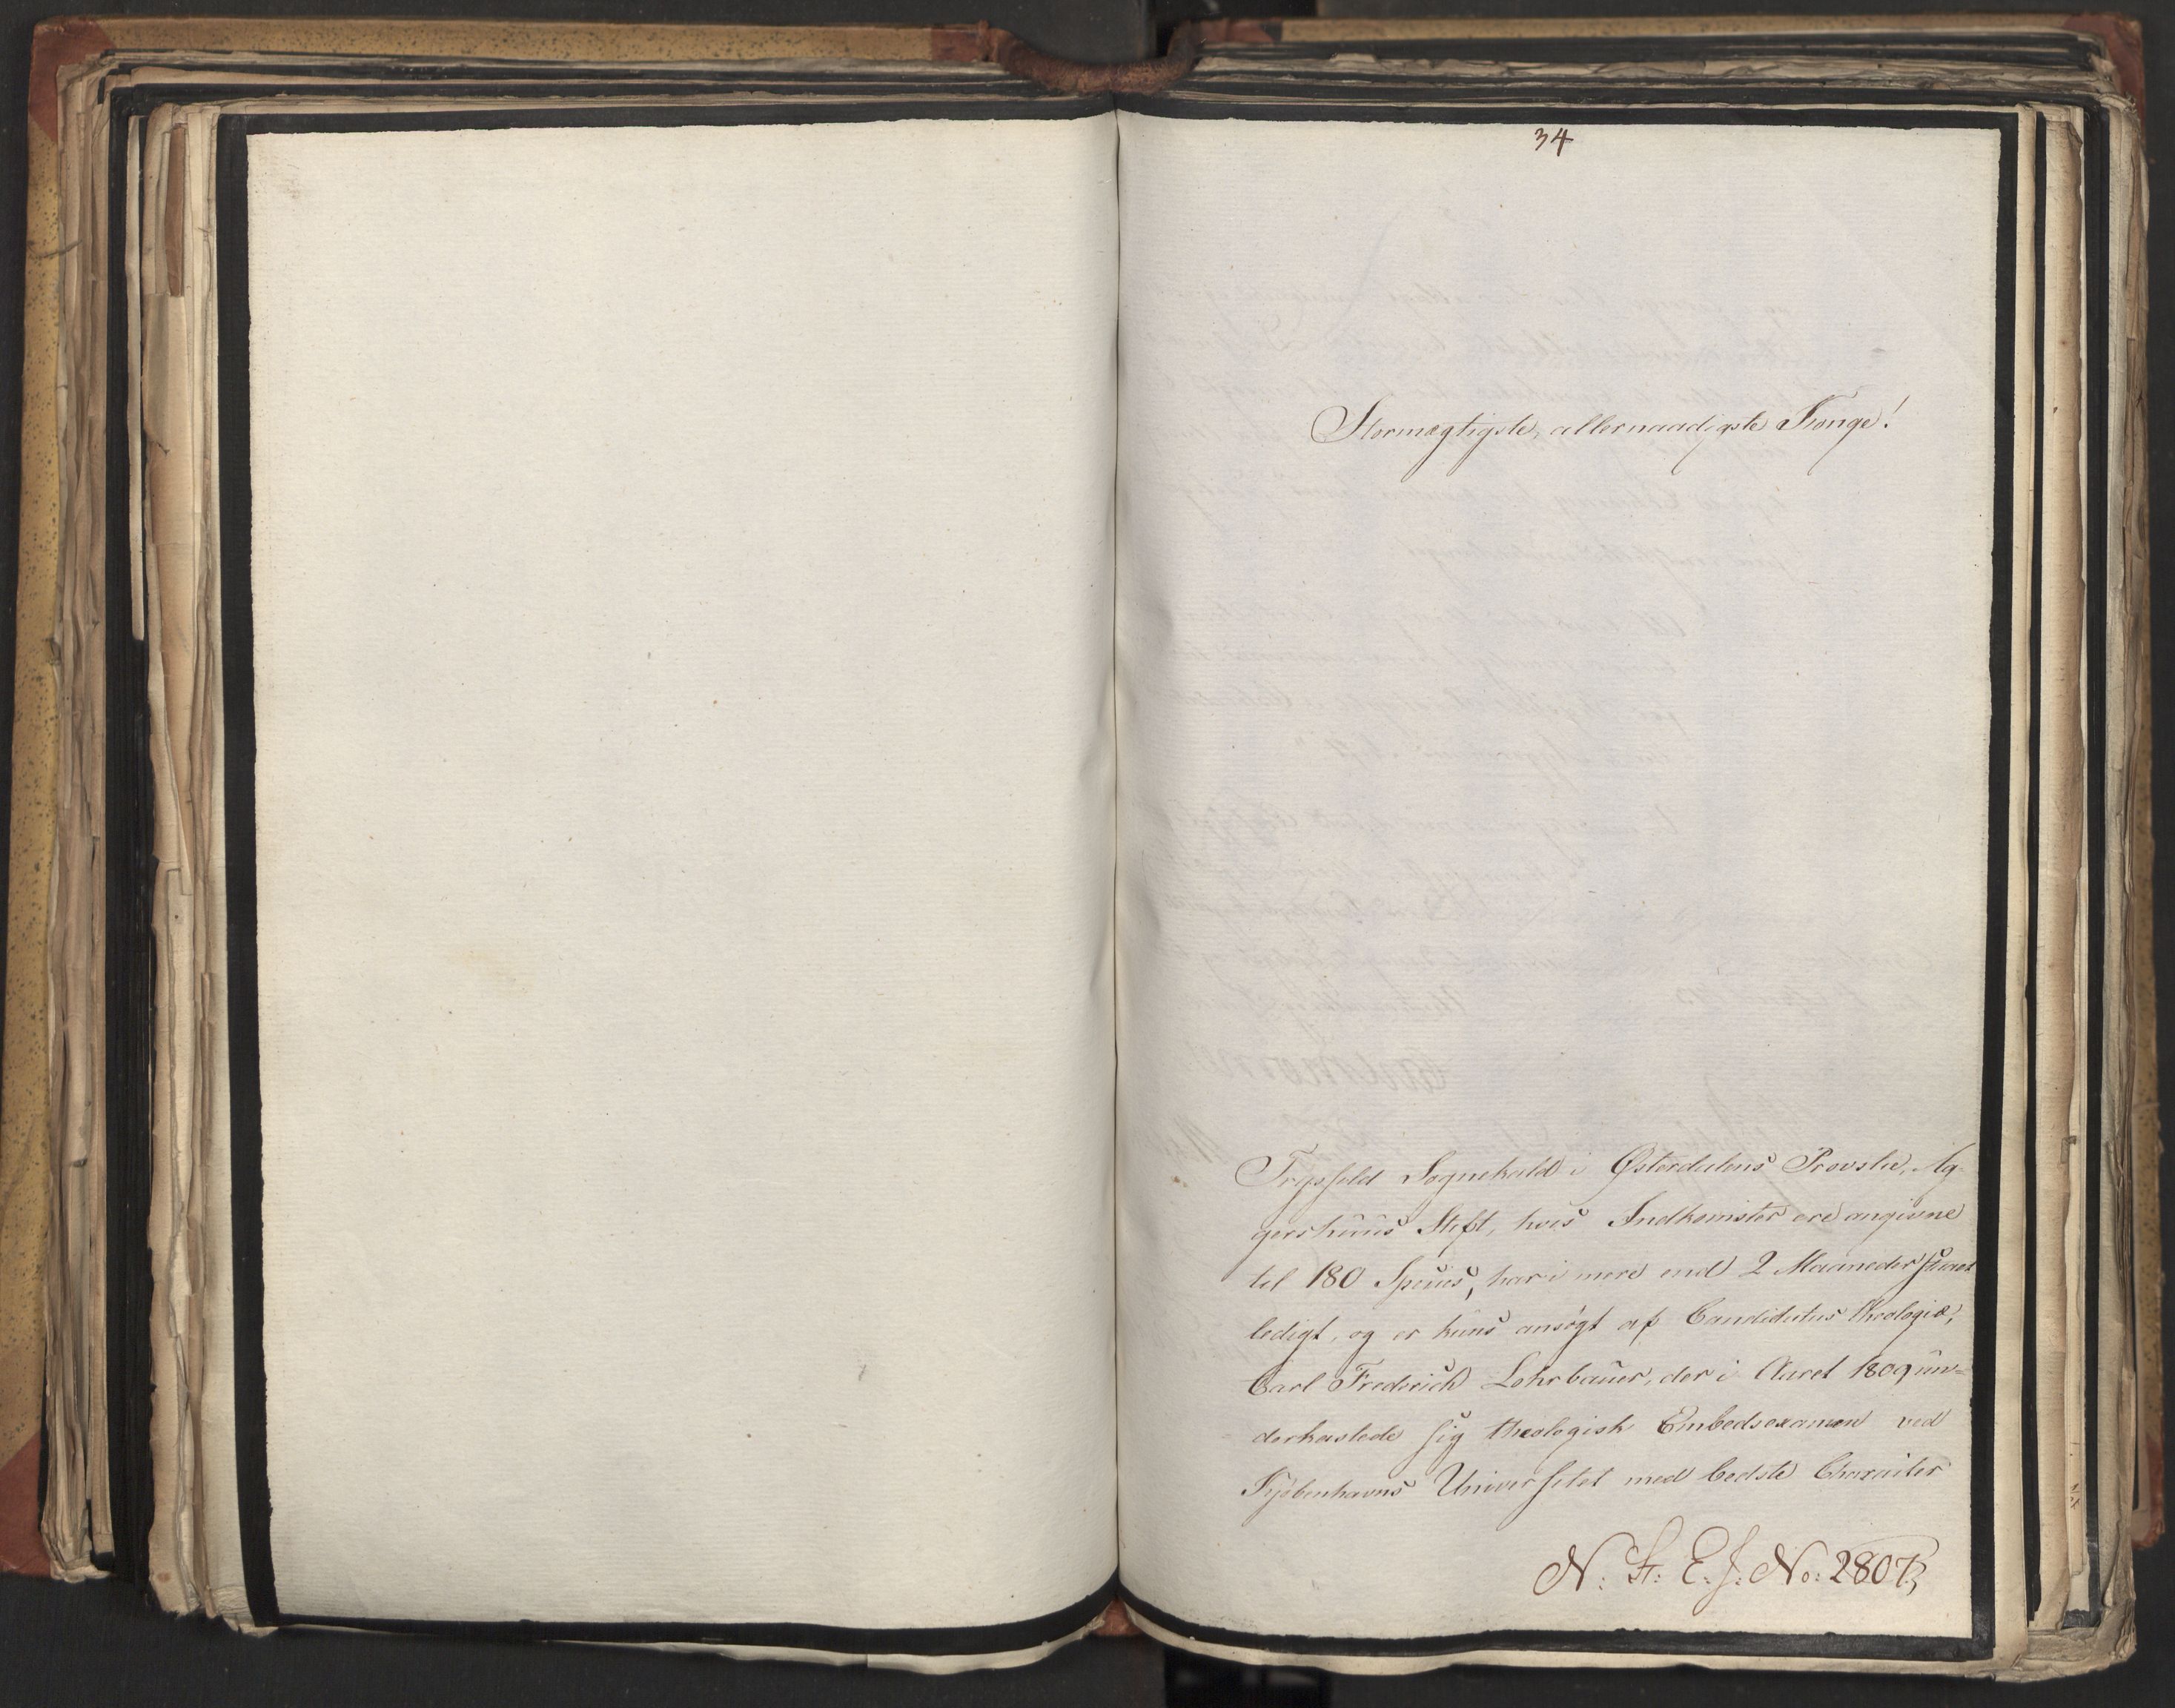 34
Stormægtigste, allernaadigste Konge!
Trysfild Sognekald i Østerdalens Provstie, Ag-
gershuus Stift, hvis Indkomster ere angivne
til 180 Specier, har i mere end 2 Maaneder staaet
ledigt, og er kuns ansøgt af Candidatus theologiæ,
Carl Frederich Lohrbauer, der i Aaret 1809 un-
derkastede sig theologisk Embedsexamen ved
Kjøbenhavns Universitet med bedste Character
N: St: E: J: No: 2807